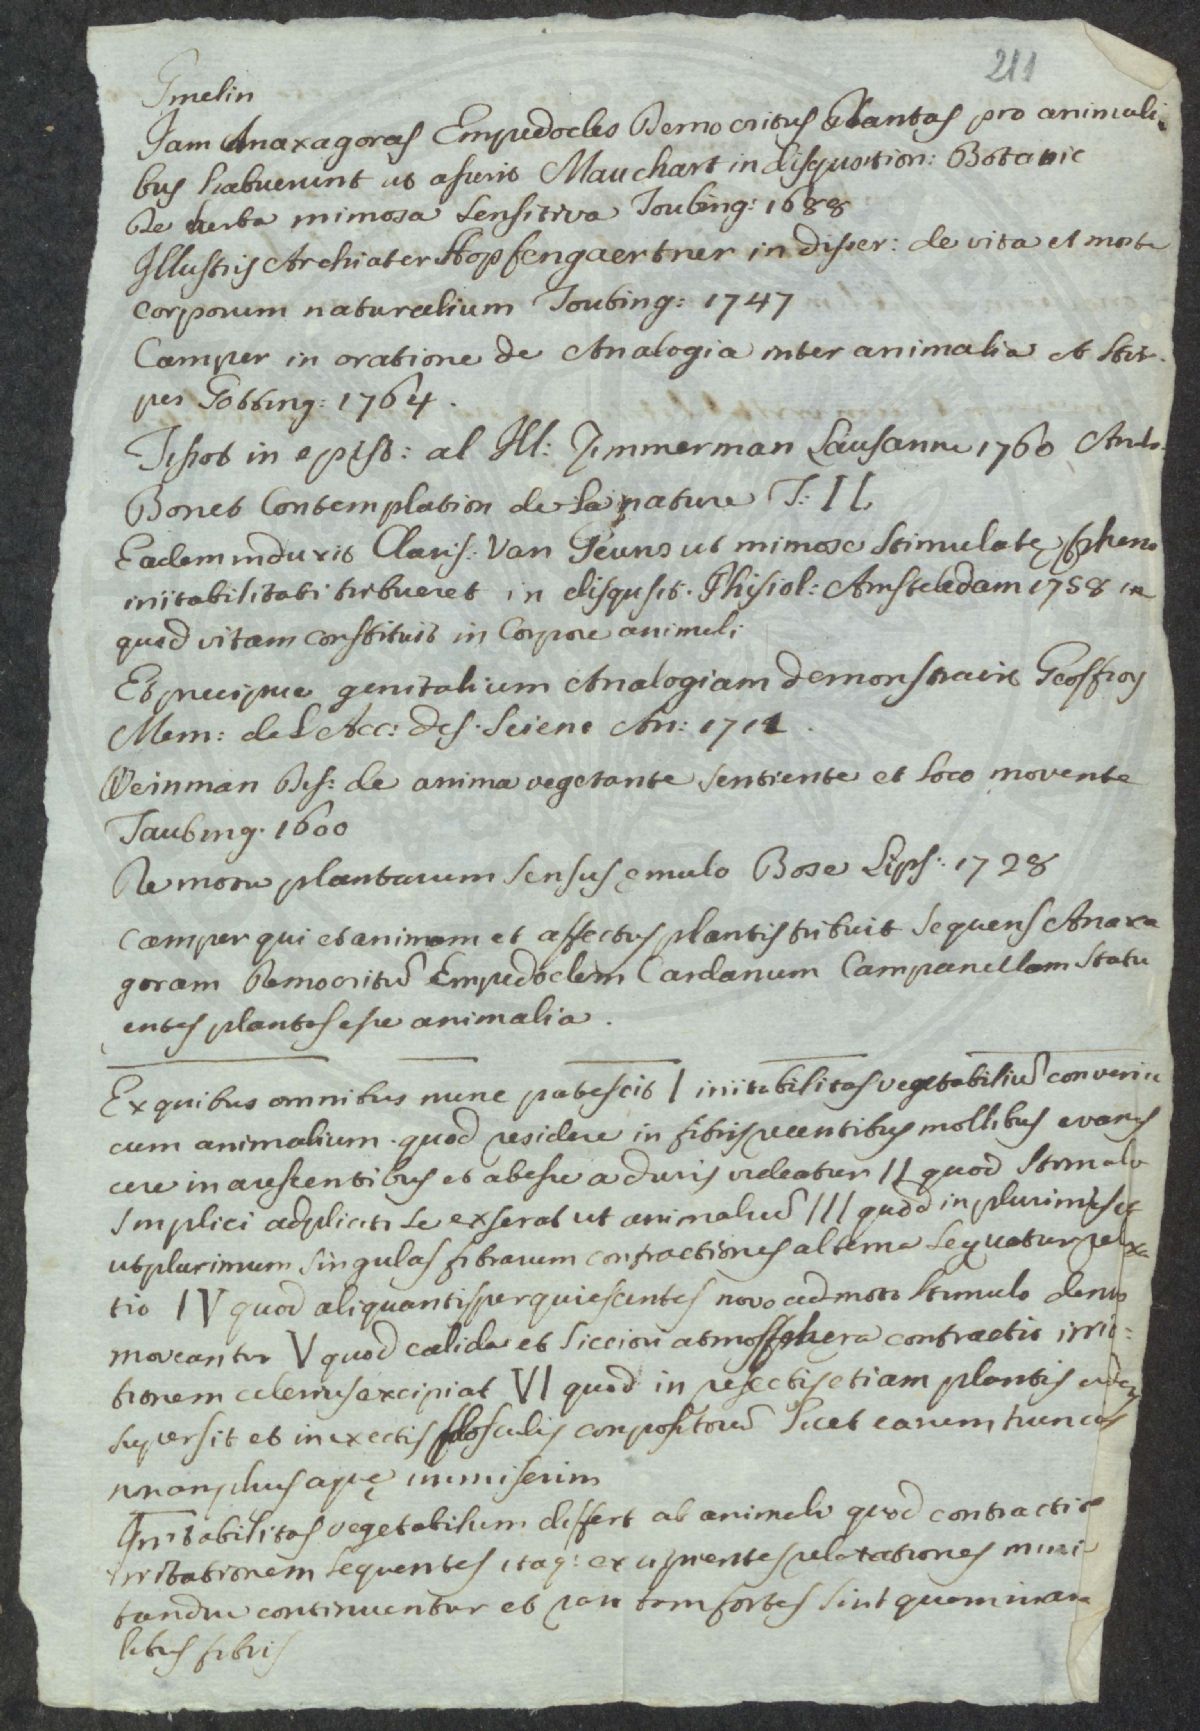 211
Gmelin
Jam Anaxagoras Empedocles Democritus Plantas pro animali
bus habuerunt ut aserit Mauchart in disquotion: Botanic
De herba mimosa sensitiva Toubing: 1688
Illustris Archiater Hopfengaertner in disser: de vita et morte
corporum naturalium Toubing: 1747
Camper in oratione de Analogia inter animalia et stir.
pes Gotting: 1764.
Tissot in epist: al Ill: Zimmerman Lausanne 1760
Bonet Contemplation de la nature T: II
Eadem induxit Claris: Van Geuns ut mimosę stimulatę
irritabilitati tribueret in disqusit. Phisiol: Amsteledam 1758 in
quod vitam constituit in Corpore animali
Et precipue genitalium Analogiam demonstravit Geoffroy
Mem: de L Acc: des. Scienc An: 1711.
Weinman Dis: de anima vegetante sentiente et loco movente
Taubing. 1600
De motu plantarum sensus ęmulo Bose Lips: 1728
Camper qui et animam et affectus plantis tribuit sequens Anaxa
goram Democritū Empedoclem Cardanum Campanellam statu
entes plantas esse animalia.
Ex quibus omnibus nunc patescit I irritabilitas vegetabiliū
cum animalium. quod residere in fibris recentibus mollibus evanes
cere in arescentibus et abesse a duris videatur II quod stimulo
simplici adplicito se exserat ut animaliū III quod in plurimis et
utplurimum singulas fibrarum contractiones alterna sequatur relxa
tio IV quod aliquantisper quiescentes novo admoto stimulo denuo
moveantur V quod calida et sicciori atmosfphera contractio irrita:
tionem celerius excipiat VI quod in resectis etiam plantis
supersit et in exectis flosculis conpositorū licet earum truncus
non amplius aquę immiserim
Irritabilitas vegetabilium differt ab animali quod contractio
irritationem sequentes itaq: excipientes relaxationes minu
tandiu continuentur et non tam fortes sint quam in ani
libus fibris